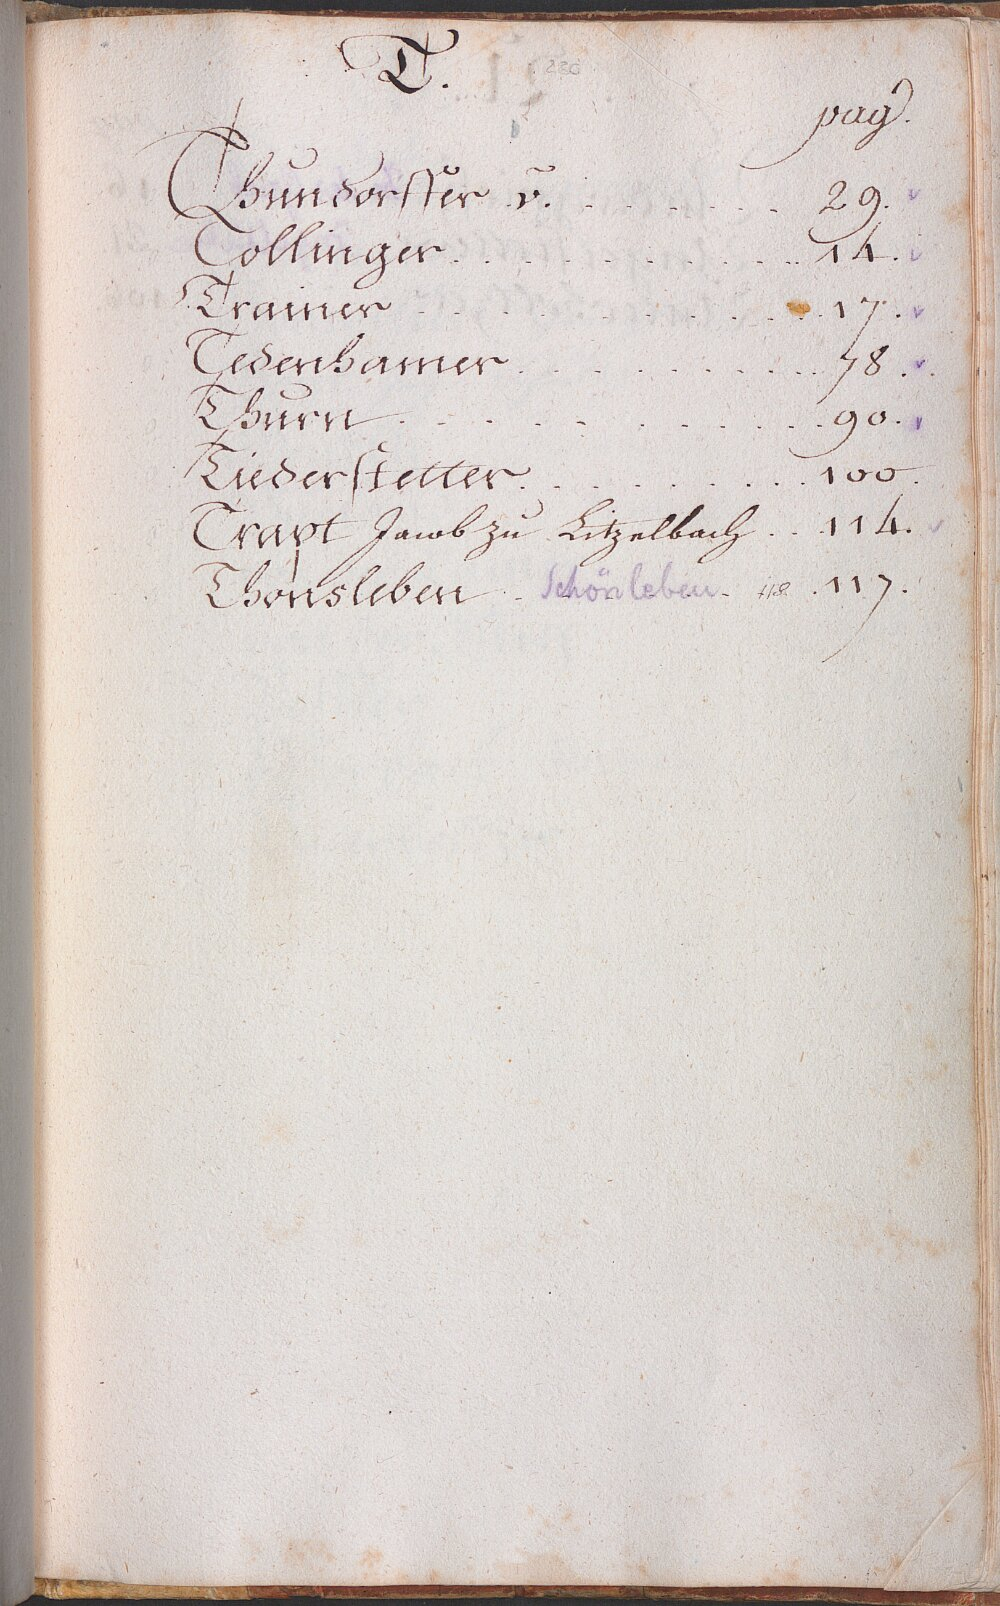 T. 280
pag.
Thundorffer v. . . . . . . . 29. v
Tollinger . . . . . . . . . . 14. v
Trainer . . . . . . . . . . 17. v
Tedenhamer . . . . . . . . . 78. v.
Thurn . . . . . . . . . . 90. v
Tiederstetter . . . . . . . . . 100.
Trapt Jacob zu Litzelbach . . 114. v
Thonsleben . Schönleben . 118. . 117.